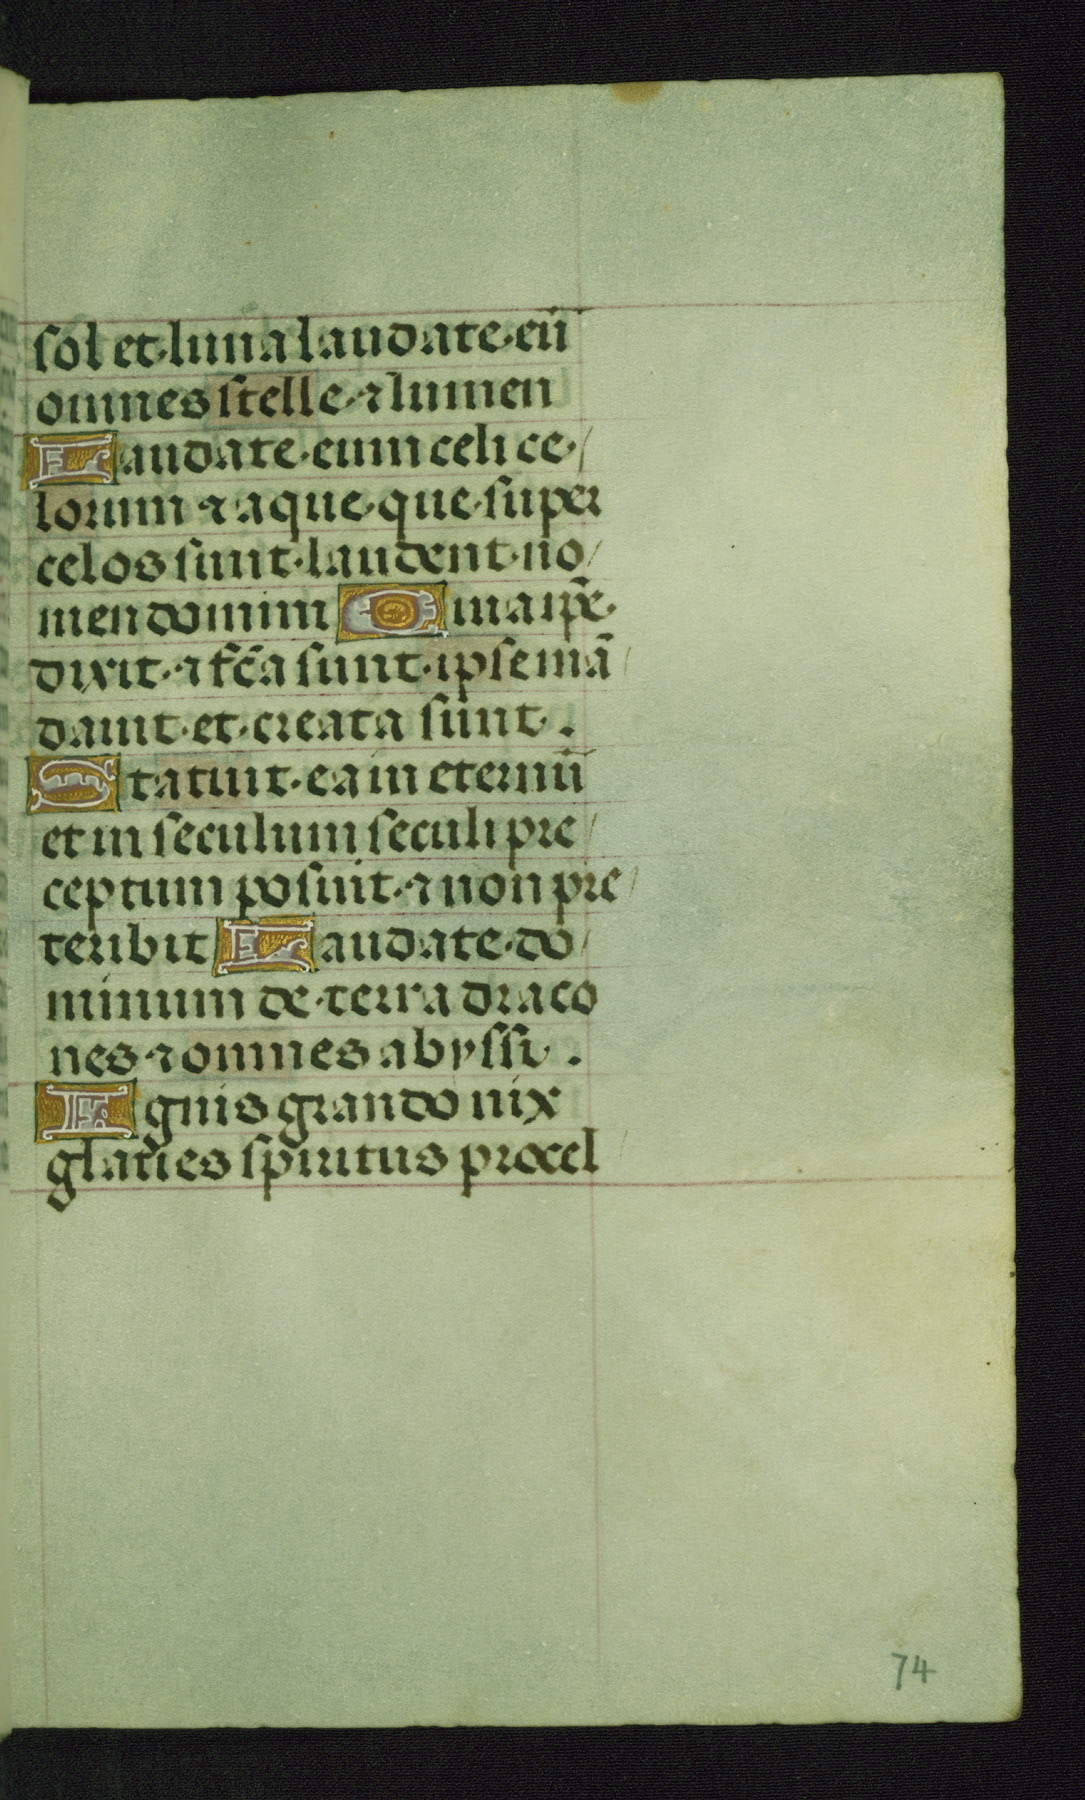 sol et luna laudate eū
omnes stelle ⁊ lumen
Laudate eum celi ce/
lorum ⁊ aque que super
celos sunt laudent no/
men domini Quia ip̄e
dixit ⁊ fc̄a sunt ipse mā/
dauit et creata sunt.
Statuit ea in eternū
et in seculum seculi pre/
ceptum posuit ⁊ non pre/
teribit Laudate do/
minum de terra draco
nes ⁊ omnes abyssi.
Ignis grando nix
glaties spiritus procel/
74